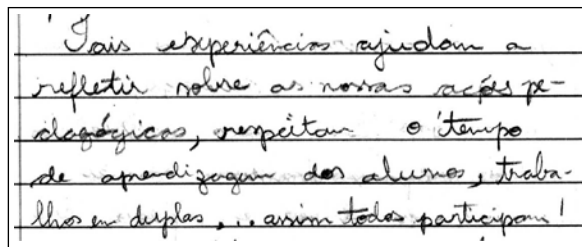 'Tais experiências ajudam a
refletir sobre as nossas ações pe-
dagógicas, respeitam o tempo
de aprendizagem dos alunos, traba-
lhos em duplas, .. assim todos participam!